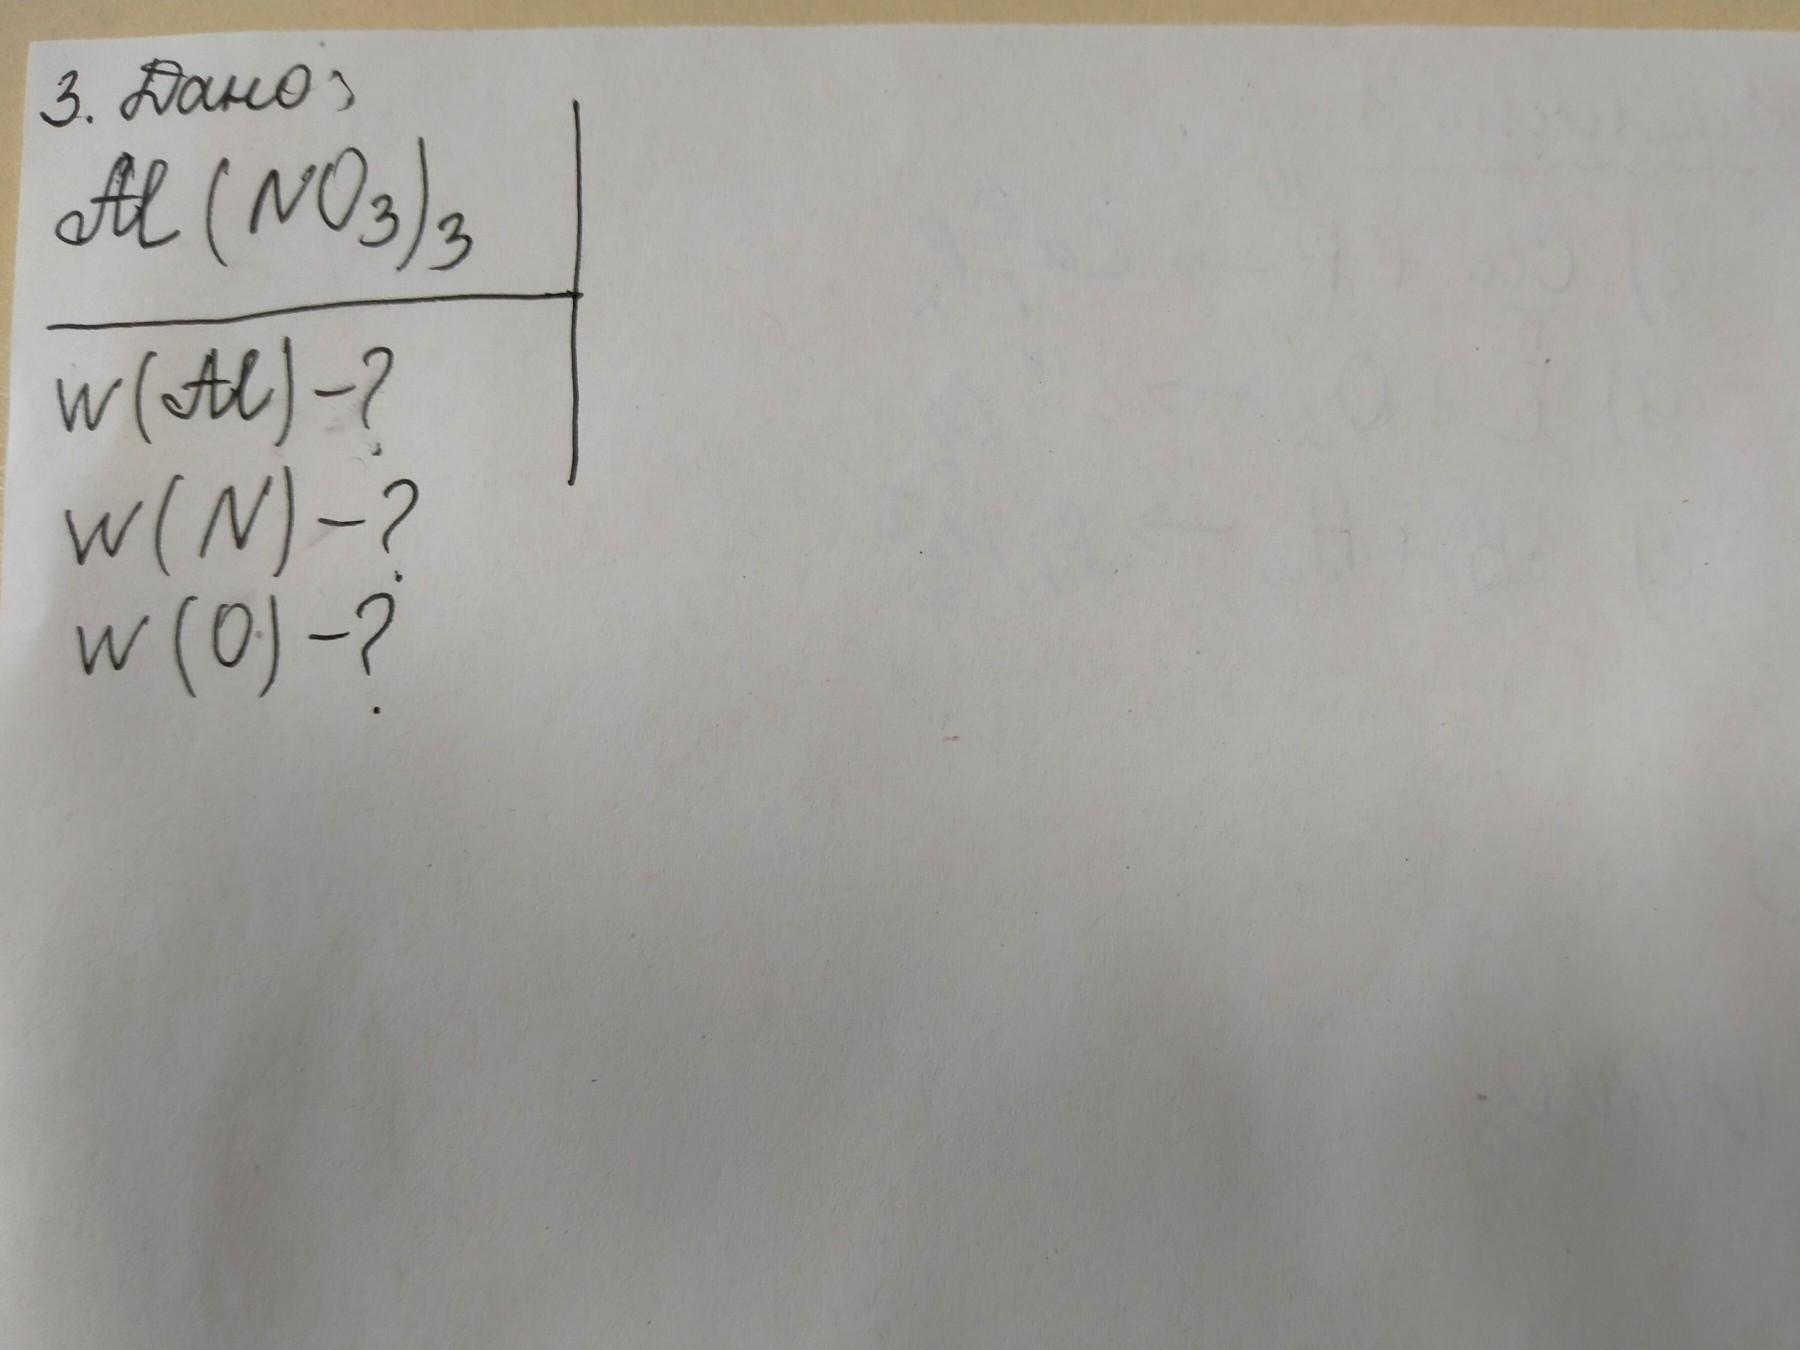 3. Дано:
Al(NO₃)₃
w(Al)-?
w(N)-?
w(O)-?